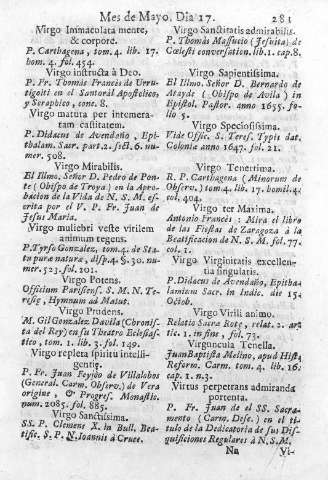 Mes de Mayo. Dia 17. 281
Virgo Immaculata mente,
& corpore.
P. Carthagena, tom. 4. lib. 17.
hom. 4. fol. 454.
Virgo instructa à Deo.
P. Fr. Thomàs Francès de Urru-
tigoiti en el Santoràl Apostolico,
y Seraphico, tome. 8.
Virgo matura per intemera-
tam castitatem.
P. Didacus de Avendaño, Epi-
thalam. Sacr. part. 2. sect. 6. num.
numer. 508.
Virgo Mirabilis.
El Illmo. Señor D. Pedro de Pon-
te (Obispo de Troya) en la Apro-
bacion de la Vida de N. S. M. es-
crita por el V. P. Fr. Juan de
Jesus Maria.
Virgo muliebri veste virilem
animum tegens.
P. Tyrso Gonzalez, tom. 4. de Sta-
tu puræ naturæ, disp. 4. §. 30. nu-
mer. 523. fol. 201.
Virgo Potens.
Officium Parisiens. S. M. N. Te-
resiæ, Hymnum ad Matut.
Virgo Prudens.
M. Gil Gonzalez Davila (Chronis-
ta del Rey) en su Theatro Ecclesias-
tico, tom. 1. lib. 3. fol. 149.
Virgo repleta spiritu intelli-
gentiæ.
P. Fr. Juan Feyjòo de Villalobos
(General. Carm. Observ.) de Vera
origine, & Progres. Monastic.
num. 2085. fol. 885.
Virgo Sanctissima.
SS. P. Clemens X. in Bull. Bea-
tific. S. P. N. Ioannis à Cruce.
Virgo Sanctitatis admirabilis.
P. Thomàs Massucio (Jesuita) de
Cœlesti conversation. lib. 1. cap. 8.
Virgo Sapientissima.
El Illmo. Señor D. Bernardo de
Atayde (Obispo de Avila) in
Epistol. Pastor. anno 1655. fo-
lio 5.
Virgo Speciosissima.
Vide Offic. S. Teres. Typis dat.
Coloniæ anno 1647. fol. 21.
Virgo Tenerrima.
R. P. Carthagena (Minorum de
Observ.) tom. 4. lib. 17. homil. 4.
fol. 404.
Virgo ter Maxima.
Antonio Francès: Mira el libro
de las Fiestas de Zaragoza à la
Beatificacion de N. S. M. fol. 77.
col. 1.
Virgo Virginitatis excellen-
tia singularis.
P. Didacus de Avendaño, Epitha-
lamium Sacr. in Indic. die 15.
Octob.
Virgo Virili animo.
Relatio Sacræ Rotæ, relat. 2. ar-
tic. 1. in fine, fol. 73.
Virguncula Tenella.
Juan Baptista Melino, apud Hist.
Reform. Carm. tom. 4. lib. 16.
cap. 1. n. 3.
Virtus perpetrans admiranda
portenta.
P. Fr. Juan de el SS. Sacra-
mento (Carm. Desc.) en el ti-
tulo de la Dedicatoria de sus Dis-
quisiciones Regulares à N. S. M.
Nn Vi-